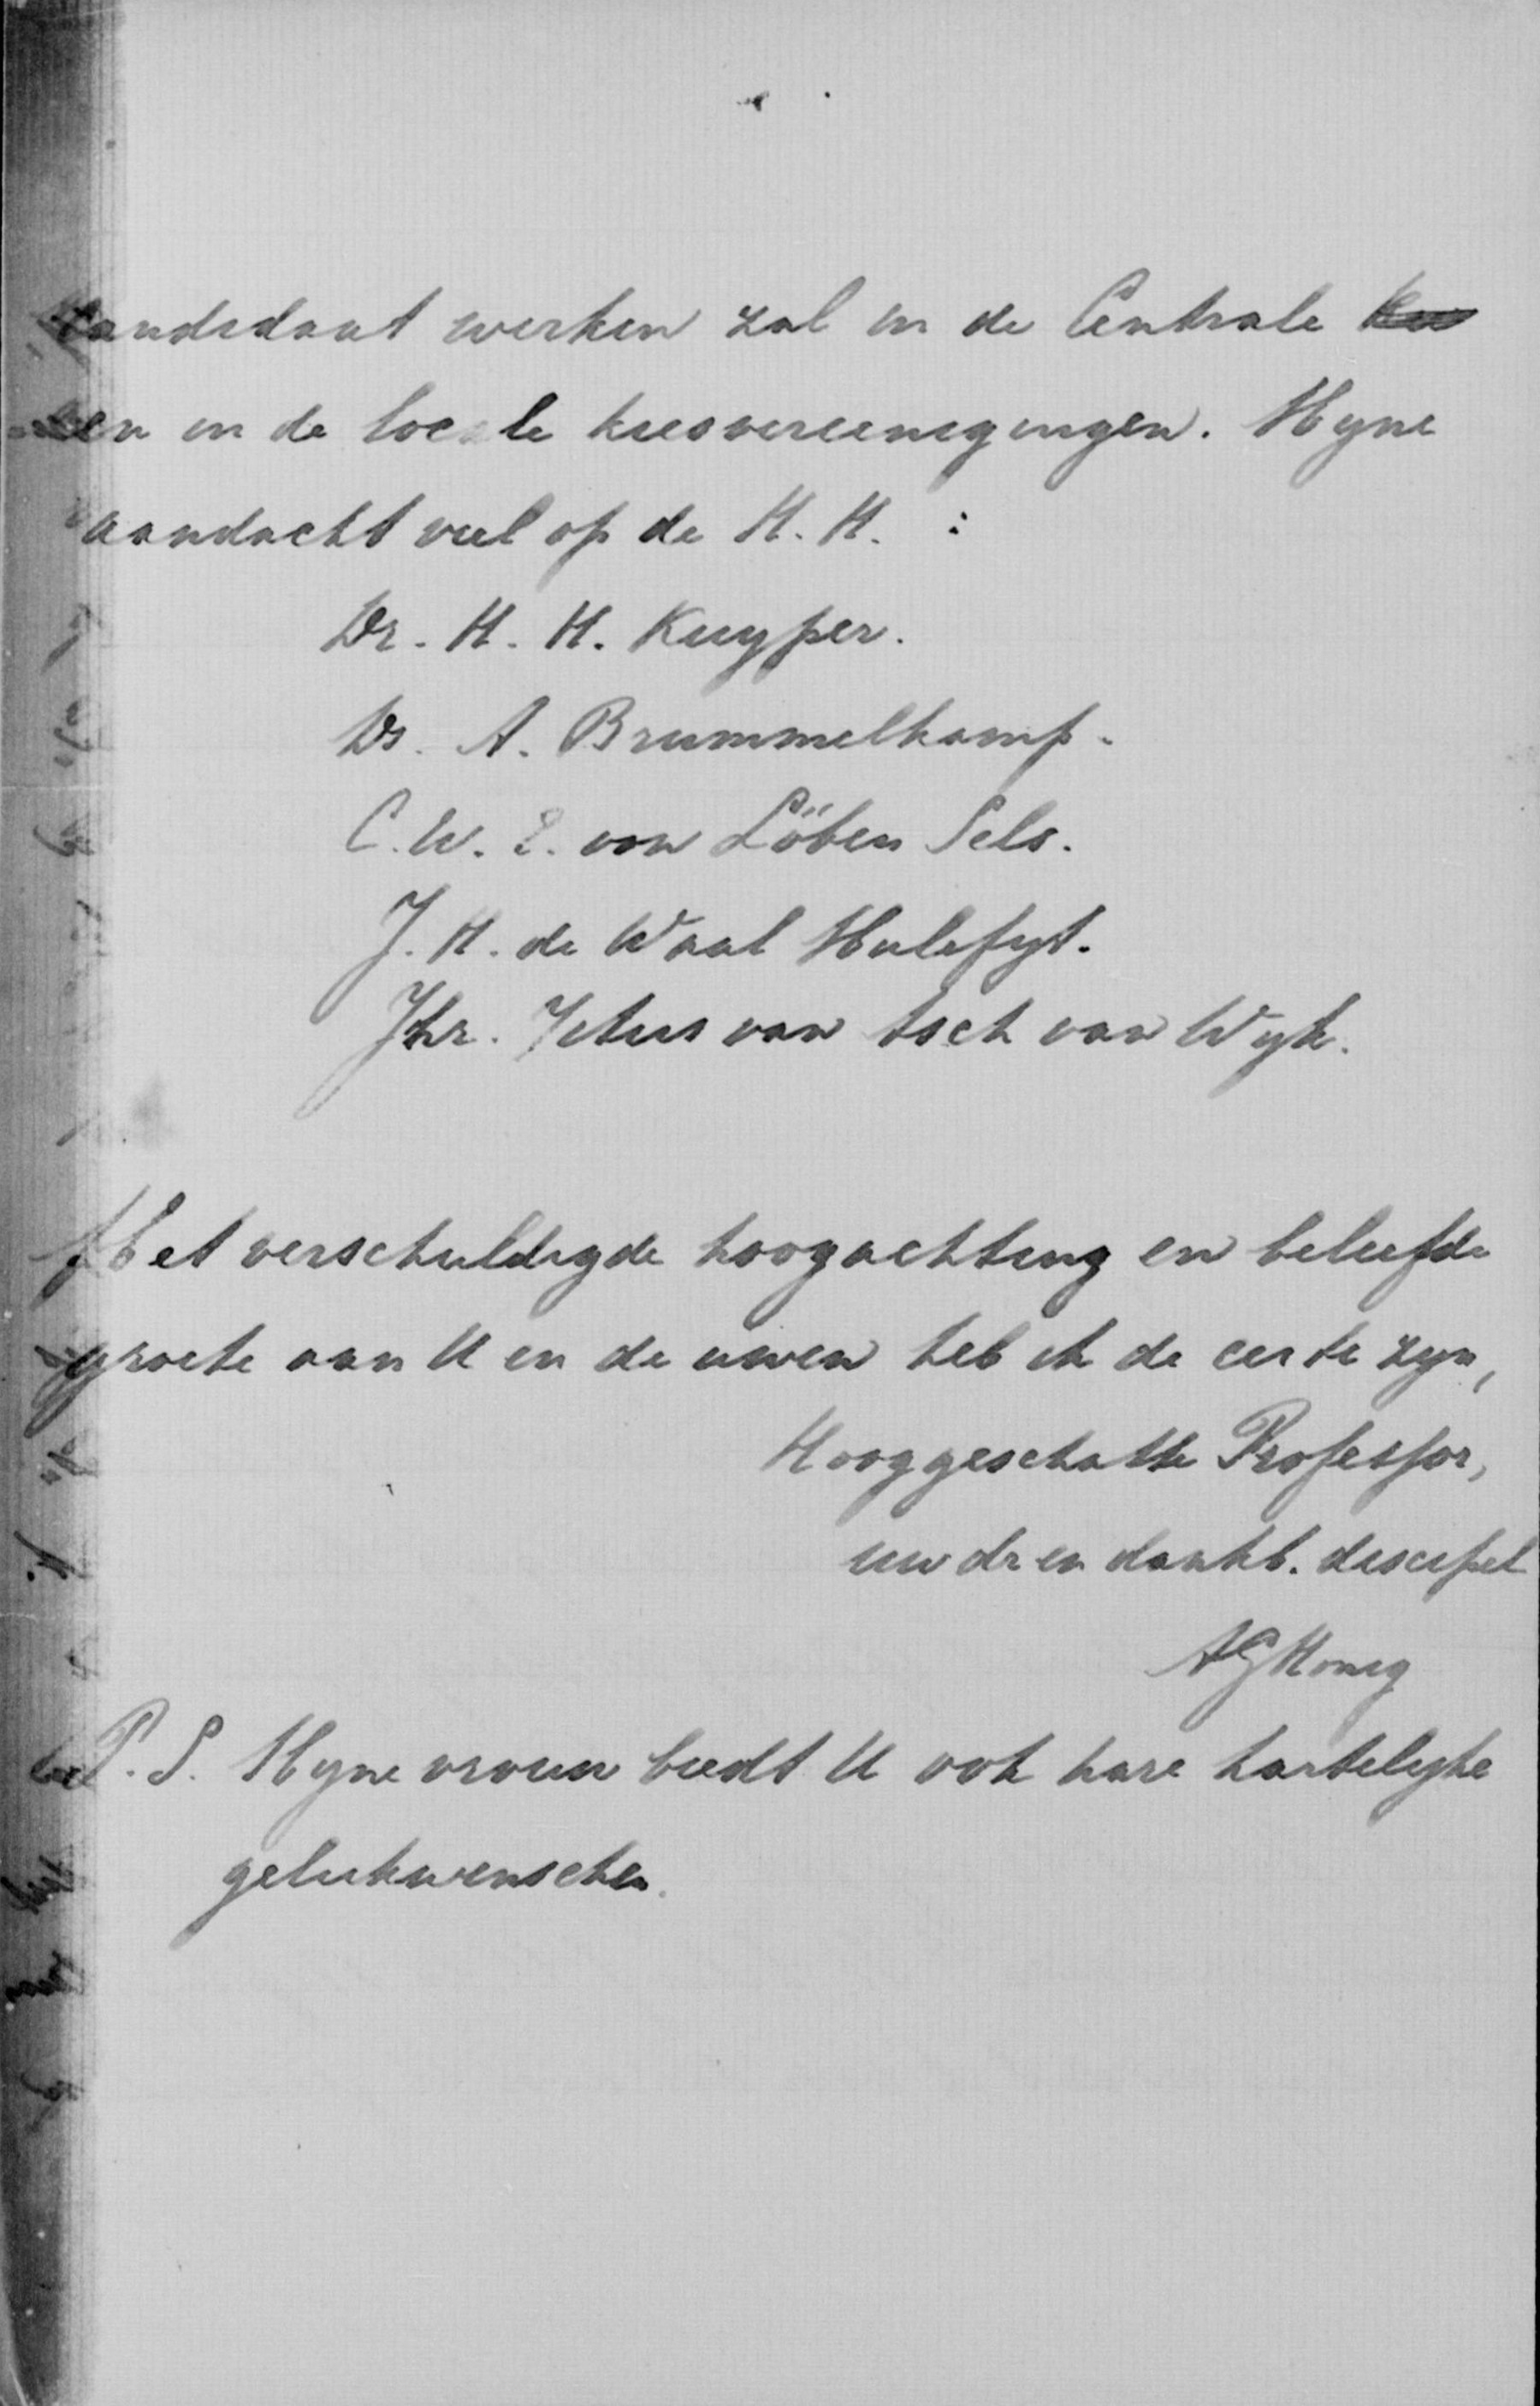 candidaat werken zal in de Centrale
en in de locale kiesvereenigingen. Myne
aandacht viel op de H. H. :
Dr. H. H. Kuyper.
Ds. A. Brummelkamp.
C. W. E. von Löben Sels.
J. H. de Waal Malefyt.
Jhr. van Asch van Wyk.
Met verschuldigde hoogachting en beleefde
groete aan U en de uwen heb ik de eer te zyn,
Hooggeschatte Professor,
uw dr en dankb. discipel
AGHonig
P.S. Myne vrouw biedt U ook hare hartelyke
gelukwenschen.